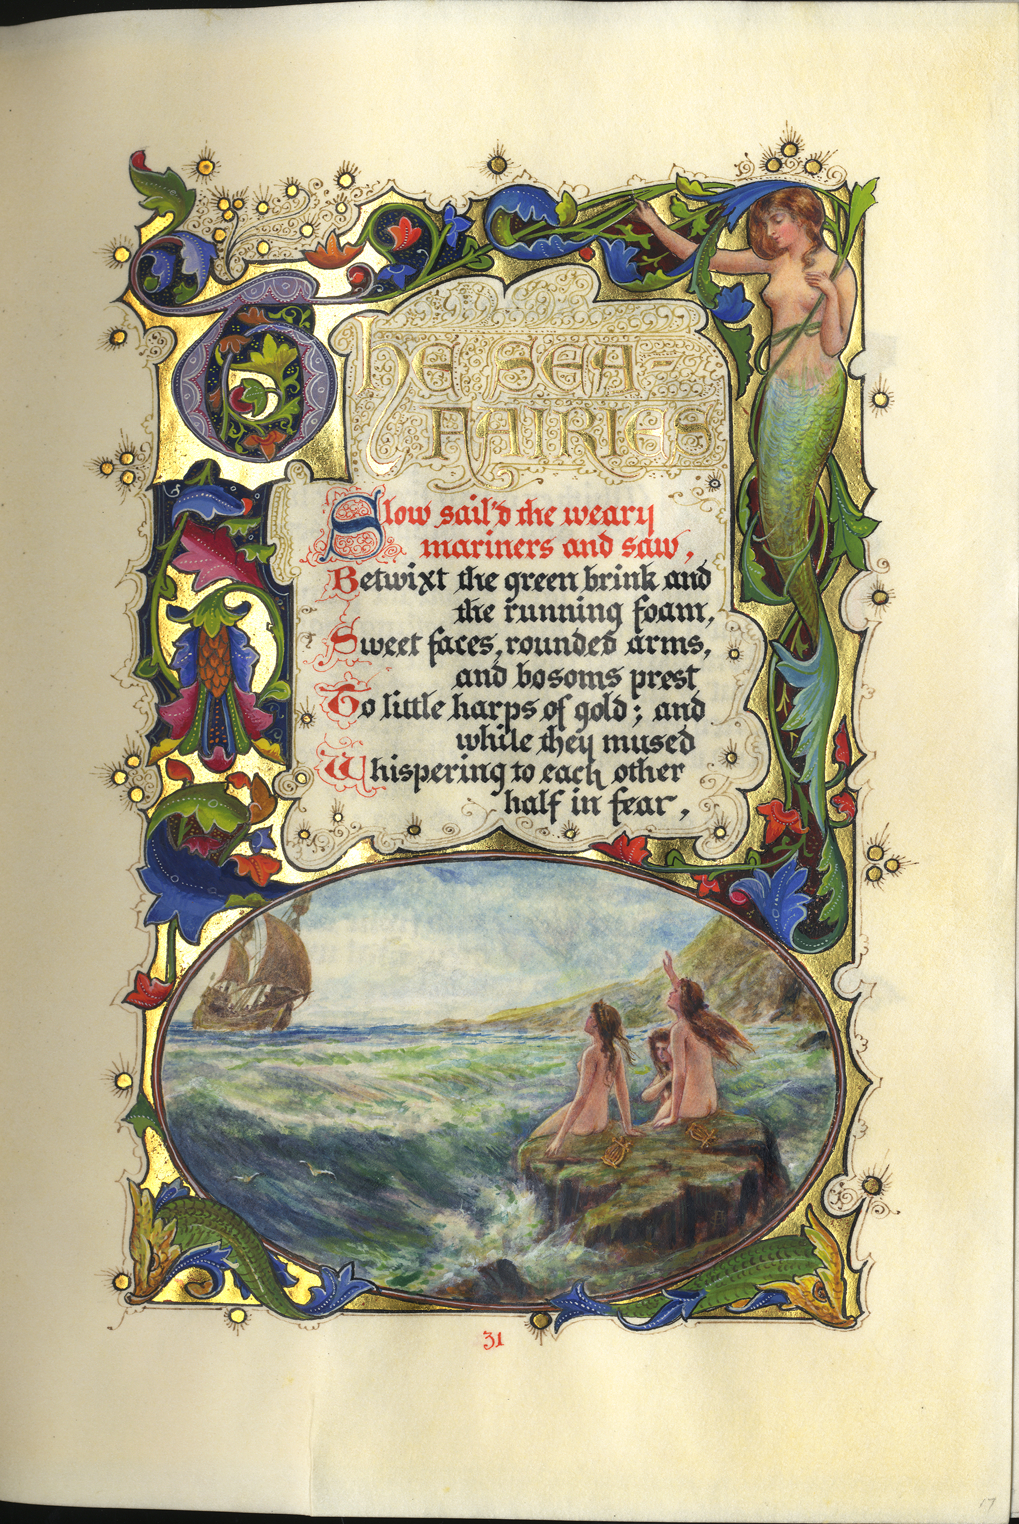 The Sea=
Fairies
Slow sail'd the weary
mariners and saw,
Betwixt the green brink and
the running foam,
Sweet faces, rounded arms,
and bosoms prest
To little harps of gold; and
while they mused
Whispering to each other
half in fear,
31
17